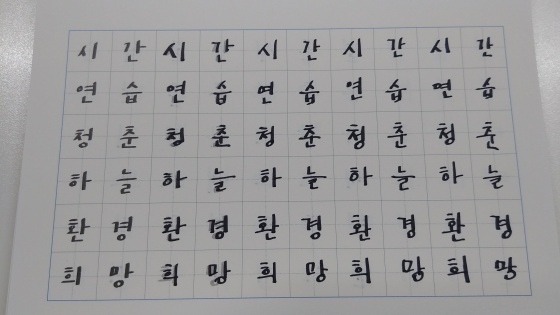 시 간 시 간 시 간 시 간 시 간
연 습 연 습 연 습 연 습 연 습
청 춘 청 춘 청 춘 청 춘 청 춘
하 늘 하 늘 하 늘 하 늘 하 늘
환 경 환 경 환 경 환 경 환 경
희 망 희 망 희 망 희 망 희 망